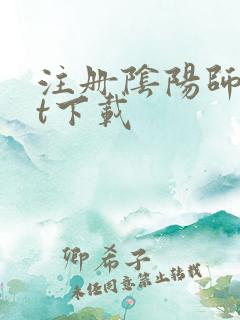 注册陰陽師
t下載
卿希子
未经同意禁止转载